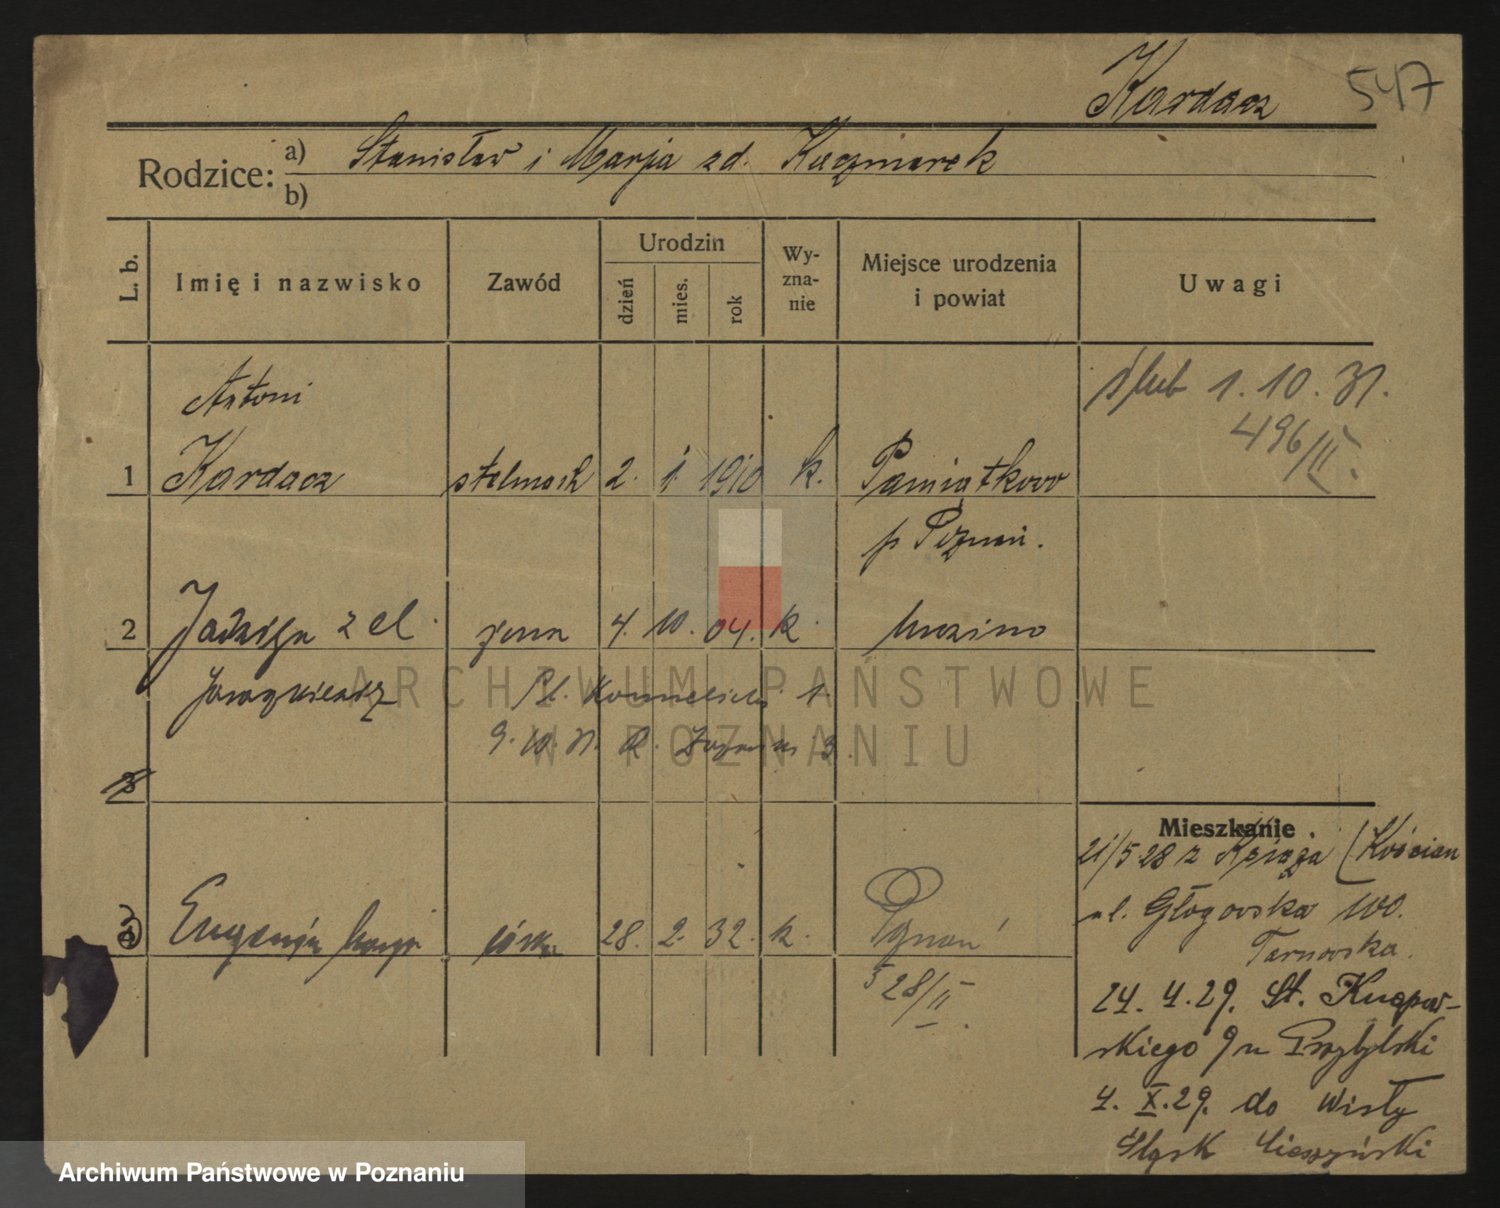 Kardacz 547
Rodzice: a) Stanisław i Marja zd. Kaczmarek
b)
L. b. Imię i nazwisko Zawód Urodzin dzień mies. rok Wy-zna-nie Miejsce urodzenia i powiat Uwagi
Antoni ślub 1. 10. 31.
496/II.
1 Kardacz stelmach 2. 1. 1910 k. Pamiątkowo
p Poznań.
2 Jadwiga z d. żona 4. 10. 04. k.
Pl. 1.
9. 10. 31. 3.
3
Mieszkanie
21/5 28 z Książa (Kościan
ul. Głogowska 100.
3) Eugenja córka 28. 2. 32. k. Poznań
Tarnowska.
528/II.
24. 4. 29. St. Knapow-
skiego 9 u Przybylski
4. X. 29. do Wisły
Śląsk Cieszyński
ARCHIWUM PAŃSTWOWE
W POZNANIU
Archiwum Państwowe w Poznaniu